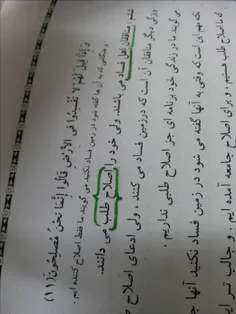 وَ إِذَا قِيلَ لَهُمْ لَا تُفْسِدُوا فِي الْأَرْضِ قَالُوا إِنَّمَا نَحْنُ مُصْلِحُونَ (۱۱)
و هنگامی که به آن ها گفته شود در زمین فساد نکنید می گویند ما فقط اصلاح کننده ایم.
ششم منافقان اهل فساد می باشند، ولی خود را اصلاح طلب می دانند.
ویژگی دیگر منافقان آن است که در زمین فساد می کنند، ولی ادعای اصلاح
می گویند ما در زندگی خود برنامه ای جز اصلاح طلبی نداریم.
نکته مهم این است که وقتی به آنها گفته می شود در زمین فساد نکنید آنها
که ما اصلاح طلب هستیم، و برای اصلاح جامعه آمده ایم. و جالب تر